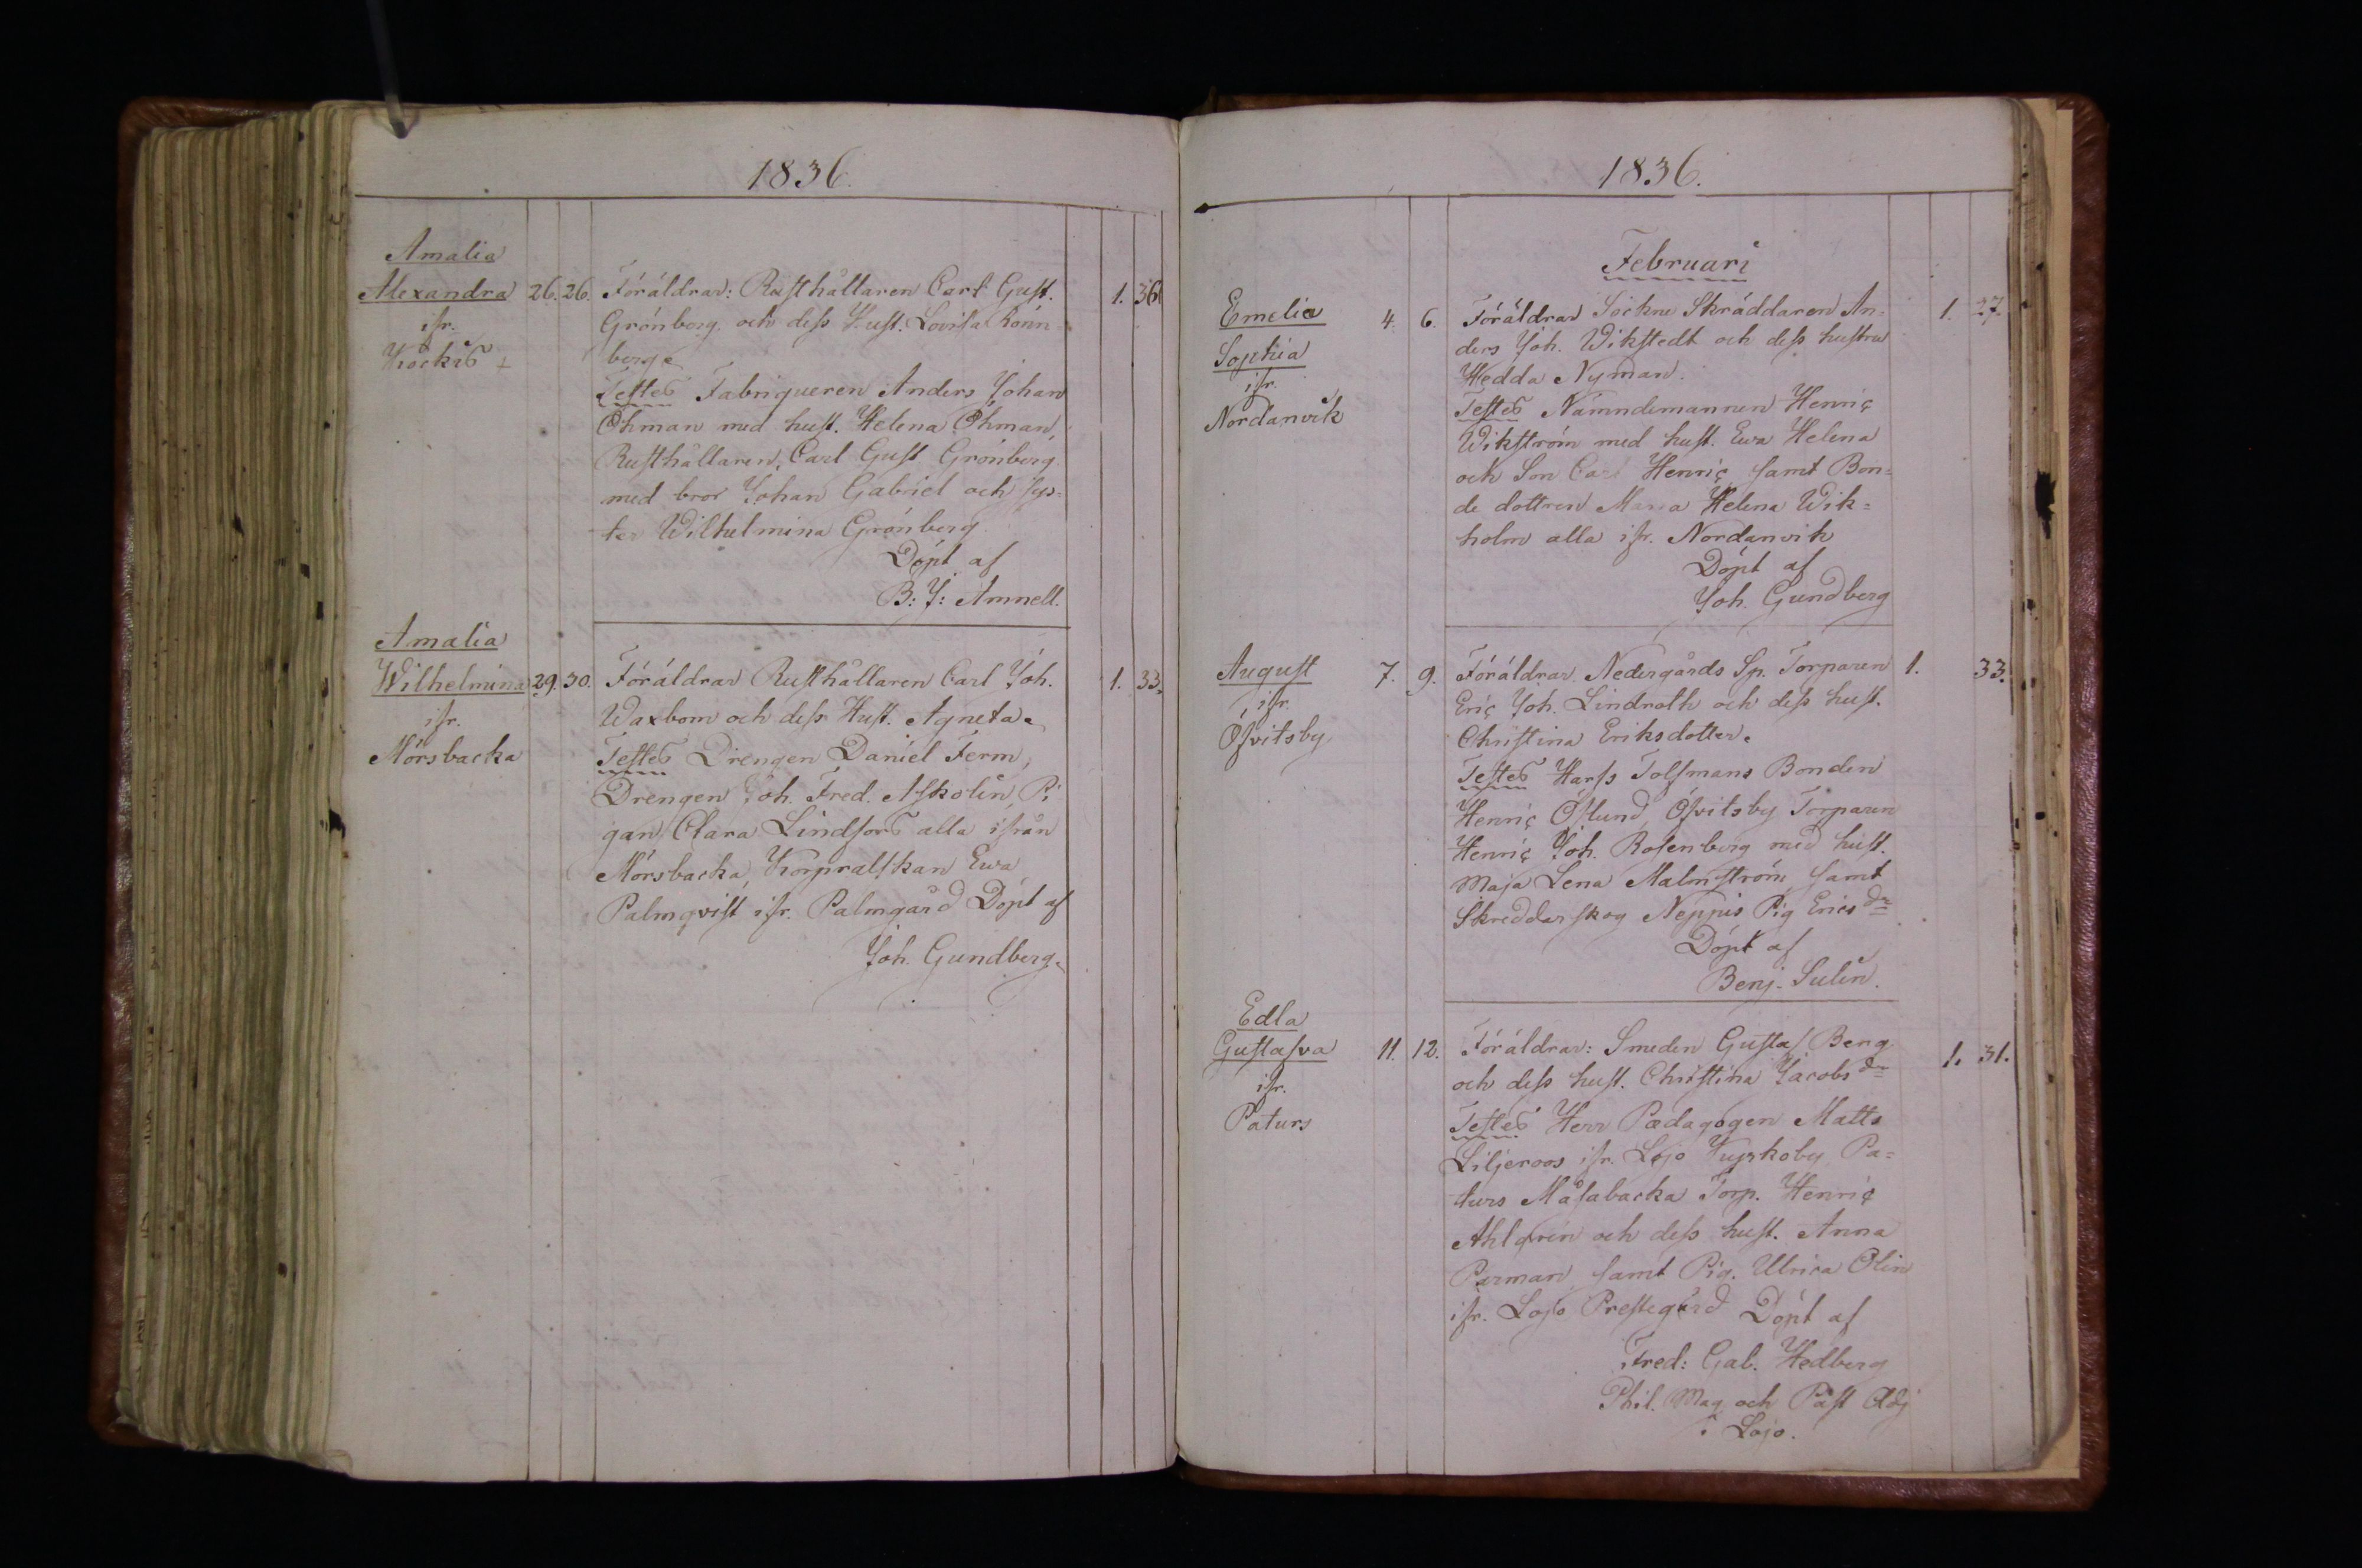 1836.
Amalia
Alexandra 26. 26. Föräldrar: Rusthållaren Carl Gust. 1. 36
ifr. Grönberg, och dess Hust. Lovisa Rönn
Kockis + berg.
Testes Fabriqueren Anders Johan
Öhman med hust. Helena Öhman,
Rusthållaren, Carl Gust Grönberg
med bror Johan Gabriel och sys=
ter Wilhelmina Grönberg
Döpt af
B: J: Amnell.
Amalia
Wilhelmina 29. 30. Föräldrar Rusthållaren Carl Joh. 1. 33.
ifr. Waxbom och dess Hust. Agneta.
Mörsbacka Testes Drengen Daniel Ferm,
Drengen Joh. Fred. Askolin, Pi
gan Clara Lindfors alla ifrån
Mörsbacka, Korpralskan Ewa
Palmqvist ifr. Palmgård Döpt af
Joh. Gundberg.
1836.
Februari
Emelia 4. 6. Föräldrar Sockne Skräddaren An= 1. 27.
Sophia ders Joh. Wikstedt och dess hustru
ifr. Hedda Nyman.
Nordanvik Testes Nämndemannen Henric
Wikström med hust. Ewa Helena
och Son Carl Henric samt Bon=
de dottren Maria Helena Wik=
holm alla ifr. Nordanvik
Döpt af
Joh. Gundberg
August 7. 9. Föräldrar Nedergårds Sp. Torparen 1. 33.
ifr. Eric Joh. Lindroth och dess hust.
Öfvitsby Christina Eriksdotter.
Testes Harfs Tolfmans Bonden
Henric Östlund, Öfvitsby Torparen
Henric Joh. Rosenberg med hust.
Maja Lena Malmström samt
Skreddarskog Neppis Pig Erics dr
Döpt af
Benj. Sulin.
Edla
Gustafva 11. 12. Föräldrar: Smeden Gustaf Berg 1. 31.
ifr. och dess hust. Christina Jacobs dr
Paturs Testes Herr Pædagogen Matts
Liljeroos ifr. Lojo Kyrkoby Pa=
turs Måsabacka Torp. Henric
Ahlgren och dess hust. Anna
Parman samt Pig. Ulrica Olin
ifr. Lojo Prestegård Döpt af
Fred: Gab. Hedberg
Phil. Mag och Past Adj
i Lojo.